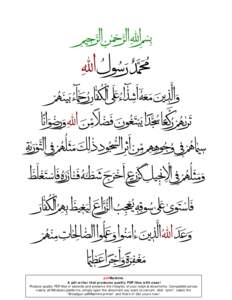 بسم الله الرحمن الرحيم
محمد رسول الله
والذين معه أشداء على الكفار رحماء بينهم
تراهم ركعا سجدا يبتغون فضلا من الله ورضوانا
سيماهم في وجوههم من أثر السجود ذلك مثلهم في التوراة
ومثلهم في الإنجيل كزرع أخرج شطأه فآزره فاستغلظ
فاستوى على سوقه يعجب الزراع ليغيظ بهم الكفار
وعد الله الذين آمنوا وعملوا الصالحات منهم
مغفرة وأجرا عظيما
pdfMachine
A pdf writer that produces quality PDF files with ease!
Produce quality PDF files in seconds and preserve the integrity of your original documents. Compatible across
nearly all Windows platforms, simply open the document you want to convert, click "print", select the
"Broadgun pdfMachine printer" and that's it! Get yours now!